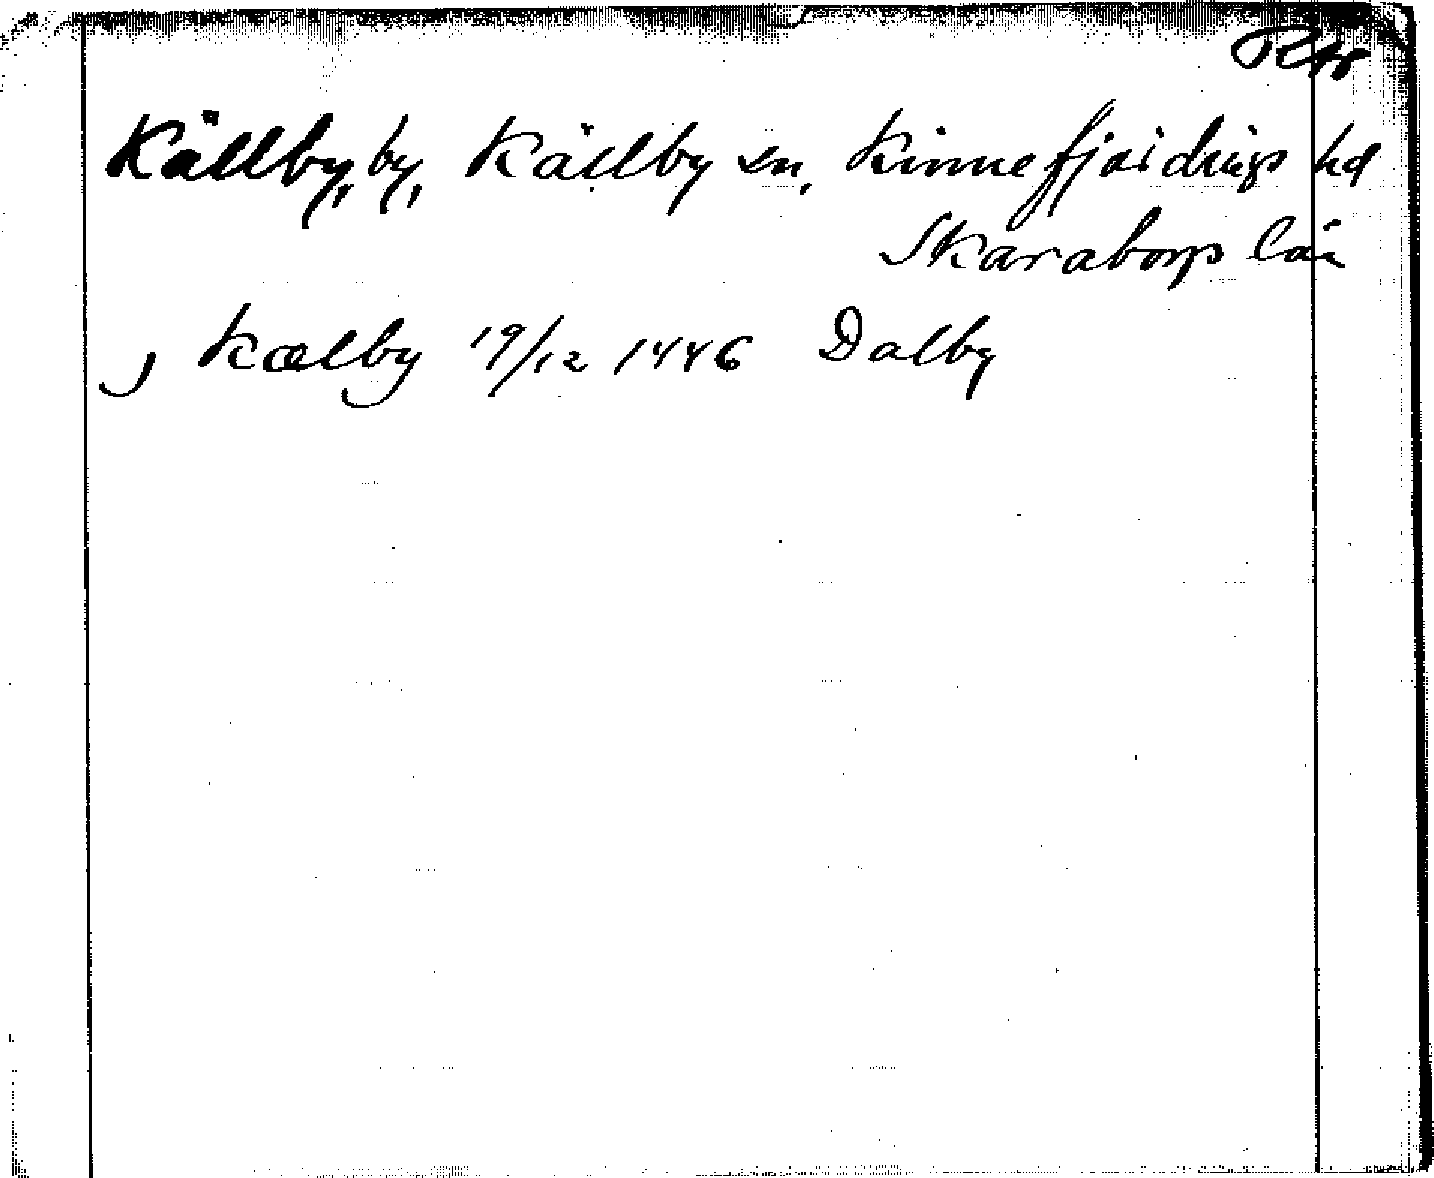 Källby, by, Källby sn, Kinnefjärdings hd
Skaraborgs län
j Kælby 19/12 1446 Dalby